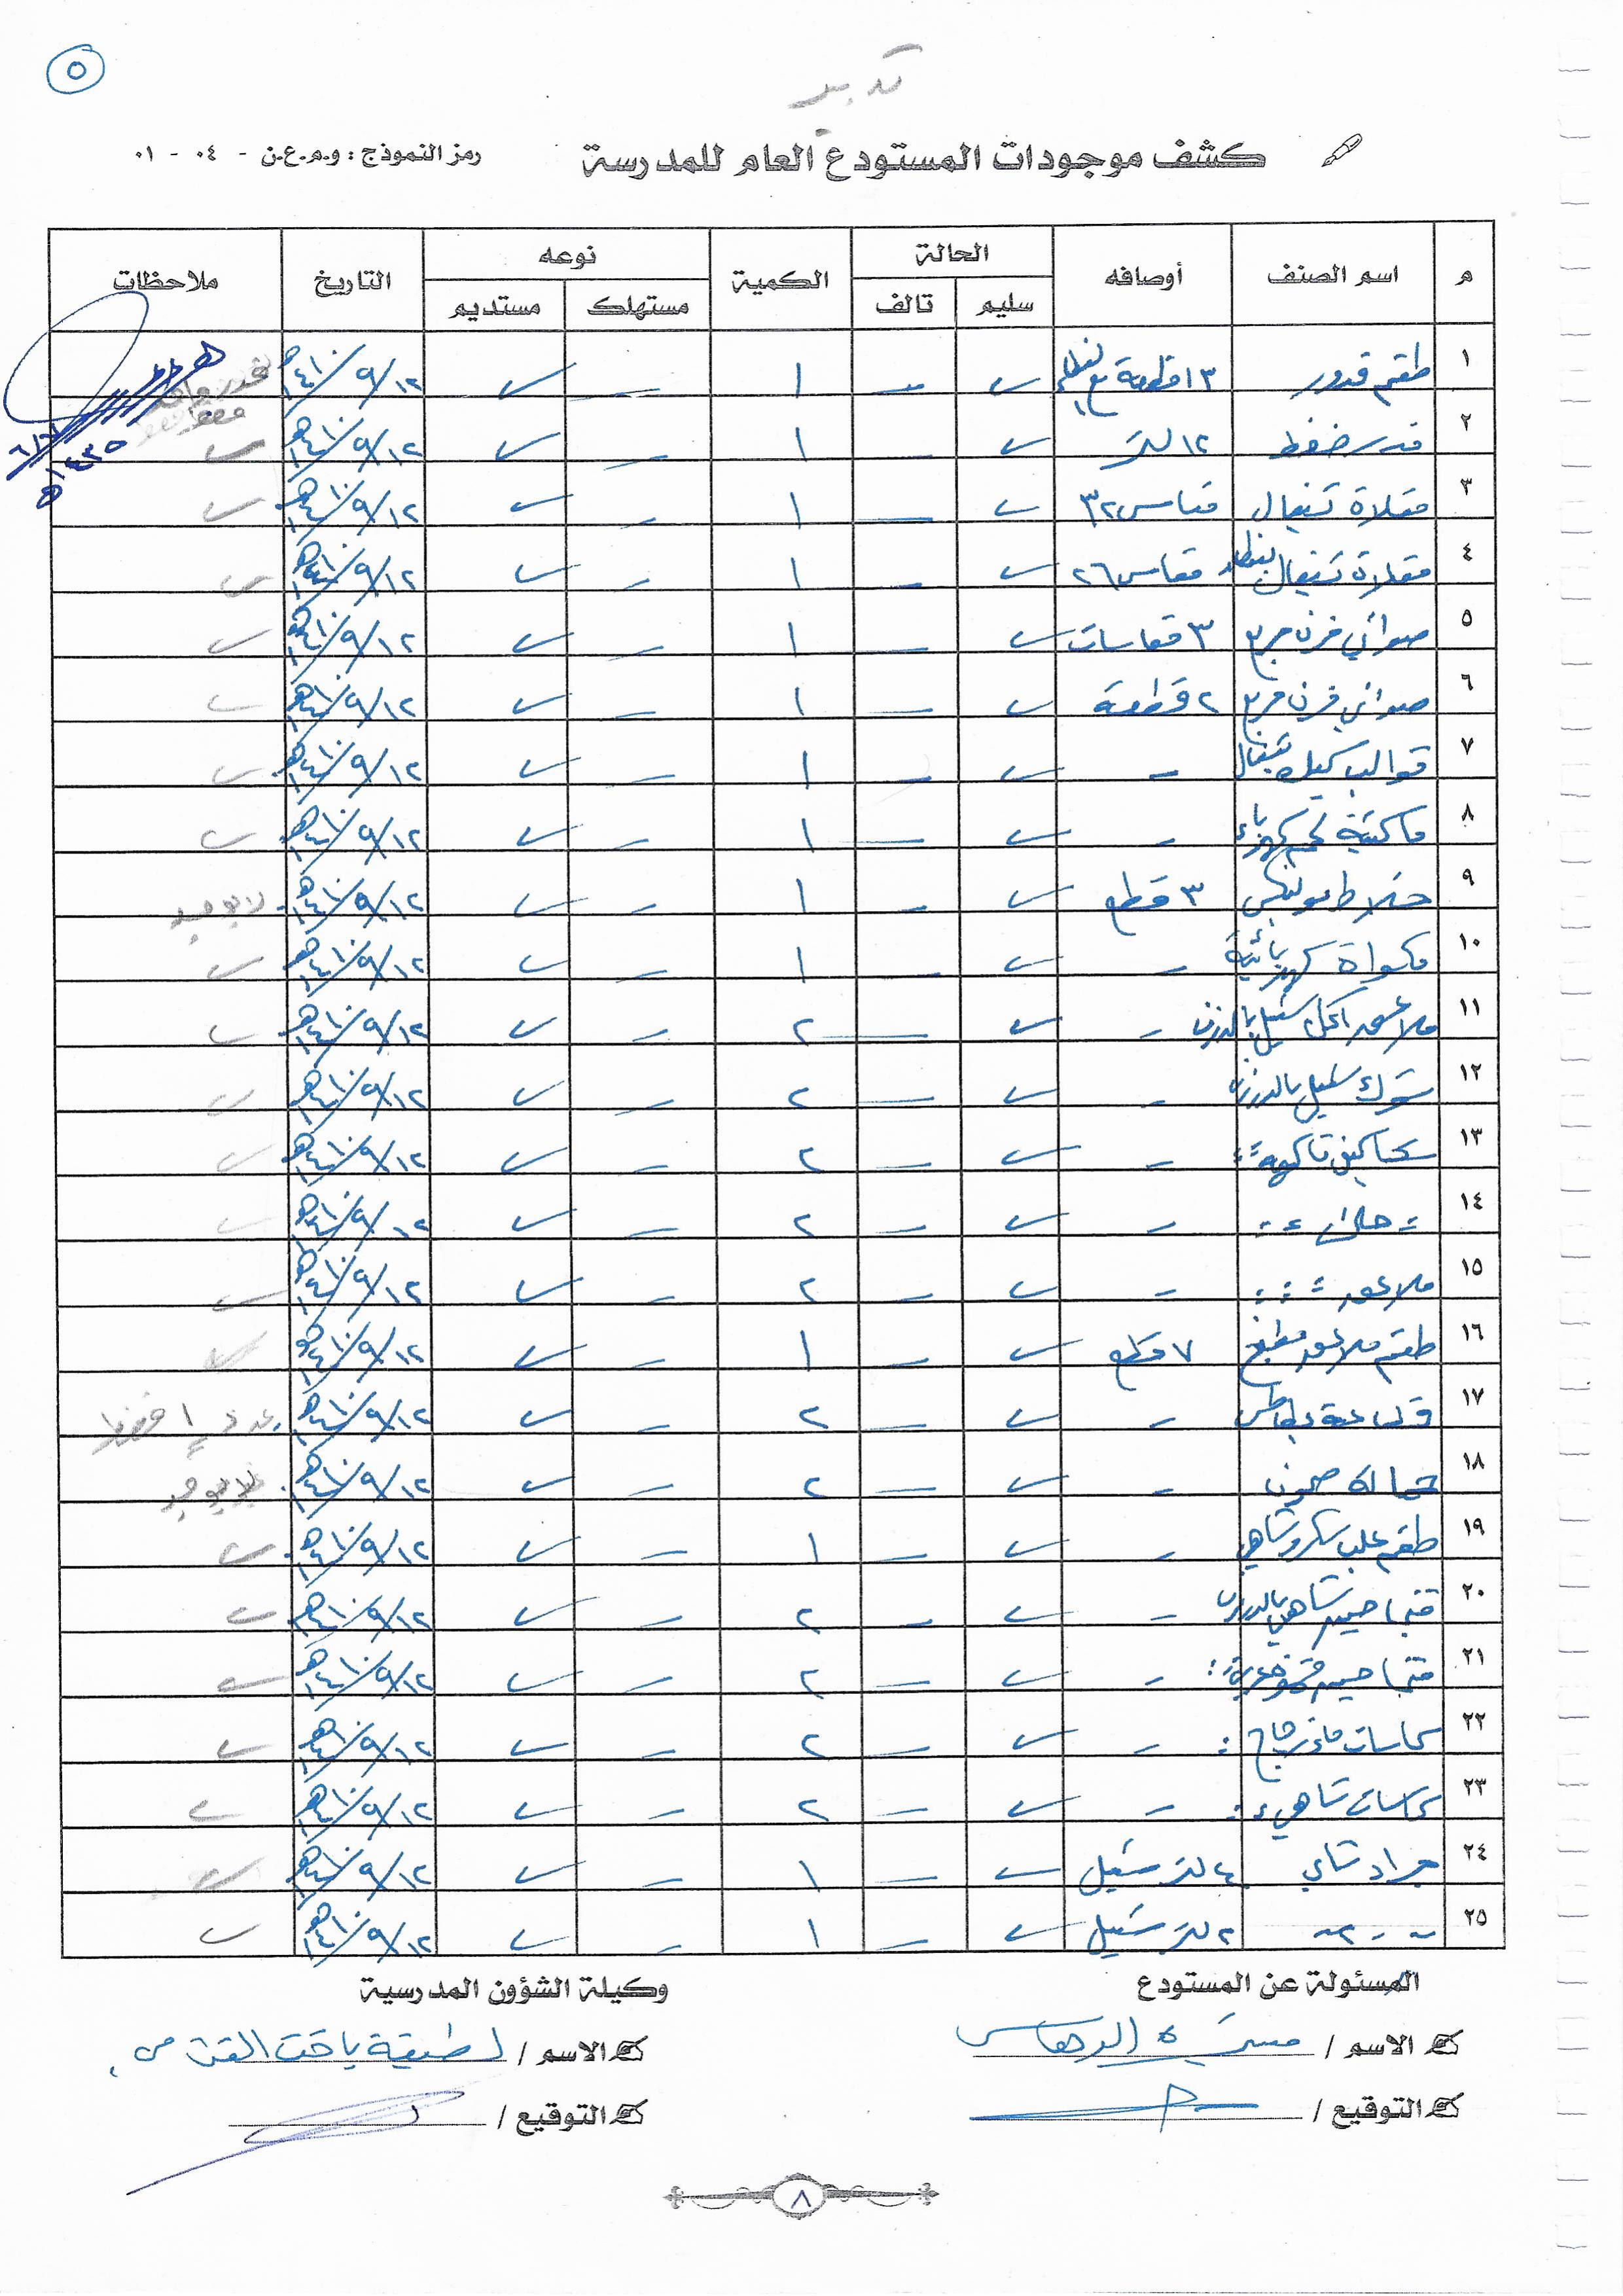 ٥
تدبير
كشف موجودات المستودع العام للمدرسة
رمز النموذج : و.م.ع.ن - ٠٤ - ٠١
م اسم الصنف أوصافه الحالة الكمية نوعه التاريخ ملاحظات
سليم تالف مستهلك مستديم
١ طقم قدور ١٣ قطعة مع ١ ١٢/٩/١٤١٠هـ
٢ قدر ضغط ١٢ لتر ١ ١٢/٩/١٤١٠هـ
٣ مقلاة تيفال مقاس ٣٢ ١ ١٢/٩/١٤١٠هـ
٤ مقلاة تيفال مقاس ٢٦ ١ ١٢/٩/١٤١٠هـ
٥ صواني فرن مربع ٣ مقاسات ١ ١٢/٩/١٤١٠هـ
٦ صواني فرن مربع ٢ قطعة ١ ١٢/٩/١٤١٠هـ
٧ قوالب كيك تيفال - ١ ١٢/٩/١٤١٠هـ
٨ ماكينة لحم كهرباء - ١ ١٢/٩/١٤١٠هـ
٩ خلاط مولينكس ٣ قطع ١ ١٢/٩/١٤١٠هـ لا يوجد
١٠ مكواة كهربائية - ١ ١٢/٩/١٤١٠هـ
١١ ملاعق اكل ستيل بالدرزن - ٢ ١٢/٩/١٤١٠هـ
١٢ شوك ستيل بالدرزن - ٢ ١٢/٩/١٤١٠هـ
١٣ سكاكين فاكهة - ٢ ١٢/٩/١٤١٠هـ
١٤ - ٢ ١٢/٩/١٤١٠هـ
١٥ ملاعق - ٢ ١٢/٩/١٤١٠هـ
١٦ طقم ملاعق مطبخ ٧ قطع ١ ١٢/٩/١٤١٠هـ
١٧ بطاطس - ٢ ١٢/٩/١٤١٠هـ عدد ١ فقط
١٨ حمالة صحون - ٢ ١٢/٩/١٤١٠هـ لا يوجد
١٩ طقم علب سكر وشاهي - ١ ١٢/٩/١٤١٠هـ
٢٠ فناجين شاهي بالدرزن - ٢ ١٢/٩/١٤١٠هـ
٢١ فناجين قهوة - ٢ ١٢/٩/١٤١٠هـ
٢٢ كاسات ماء زجاج - ٢ ١٢/٩/١٤١٠هـ
٢٣ كاسات شاهي - ٢ ١٢/٩/١٤١٠هـ
٢٤ براد شاي ٤ لتر ستيل ١ ١٢/٩/١٤١٠هـ
٢٥ ٢ لتر ستيل ١ ١٢/٩/١٤١٠هـ
المسئولة عن المستودع
وكيلة الشؤون المدرسية
الاسم /
الاسم / لطيفة
التوقيع /
التوقيع /
٨